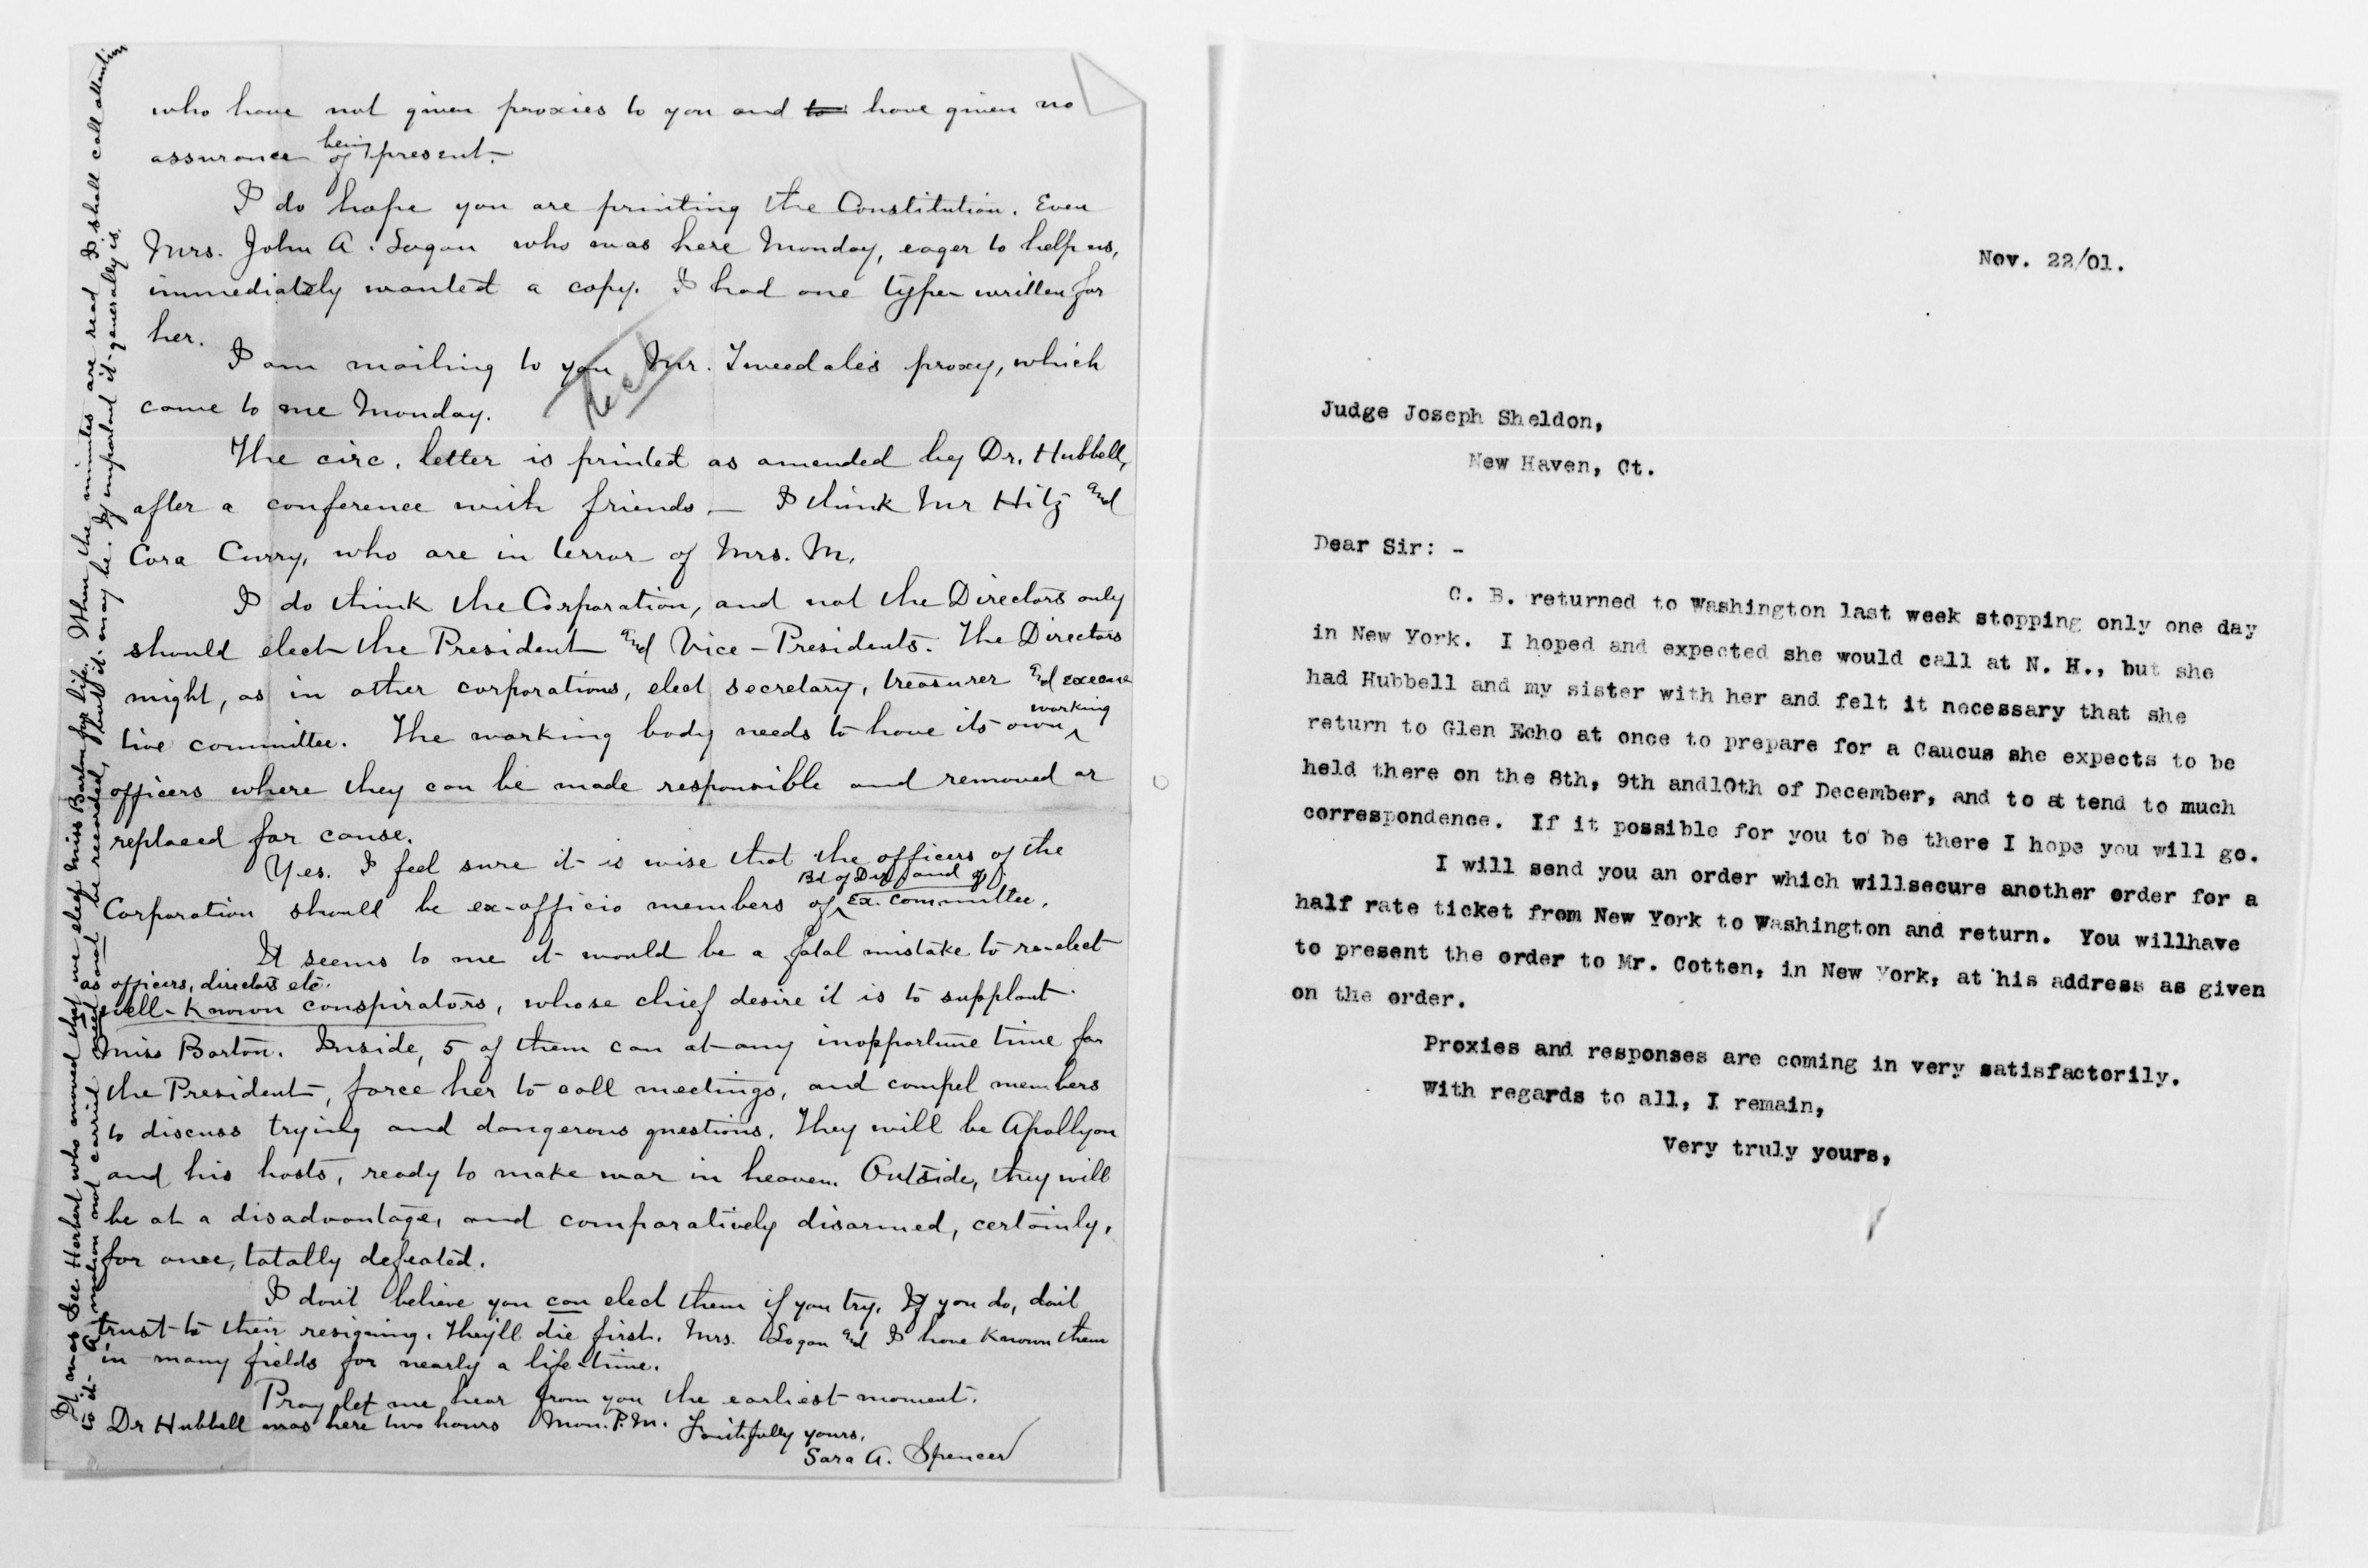 who have not given proxies to you and to have given no
assurance of being present.
I do hope you are printing the Constitution. Even
Mrs. John A. Logan who was here Monday, eager to help us,
immediately wanted a copy. I had one type written for
her.
I am mailing to you Mr. Tweedale's proxy, which
came to me Monday.
Rec'd
The circ. letter is printed as amended by Dr. Hubbell,
after a conference with friends, — I think Mr Hitz and
Cora Curry, who are in terror of Mrs. M.
I do think the Corporation, and not the Directors only
should elect the President and Vice-Presidents. The Directors
might, as in other corporations, elect secretary, treasurer and execu
tive committee. The working body needs to have its own working
officers where they can be made responsible and removed or
replaced for cause.
Yes. I feel sure it is wise that the officers of the
Corporation should be ex-officio members of Bd of Dir and of Ex. Committee.
It seems to me it would be a fatal mistake to re-elect
as officers, directors etc.
well-known conspirators, whose chief desire it is to supplant
Miss Barton. Inside, 5 of them can at any inopportune time for
the President, force her to call meetings, and compel members
to discuss trying and dangerous questions. They will be Apollyon
and his hosts, ready to make war in heaven. Outside, they will
be at a disadvantage, and comparatively disarmed, certainly,
for once, totally defeated.
I don't believe you can elect them if you try. If you do, don't
trust to their resigning. They'll die first. Mrs. Logan and I have known them
in many fields for nearly a life-time.
Pray let me hear from you the earliest moment.
Dr Hubbell was here two hours Mon. P.M. Faithfully yours,
Sara A. Spencer
It was Lee Herbert who moved that we elect Miss Barton for life. When the minutes are read I shall call attention
to it. A motion not carried need not be recorded, but it may be. If important it generally is.
Nov. 22/01.
Judge Joseph Sheldon,
New Haven, Ct.
Dear Sir: -
C. B. returned to Washington last week stopping only one day
in New York. I hoped and expected she would call at N. H., but she
had Hubbell and my sister with her and felt it necessary that she
return to Glen Echo at once to prepare for a Caucus she expects to be
held there on the 8th, 9th and10th of December, and to at tend to much
correspondence. If it possible for you to be there I hope you will go.
I will send you an order which willsecure another order for a
half rate ticket from New York to Washington and return. You willhave
to present the order to Mr. Cotten, in New York, at his address as given
on the order.
Proxies and responses are coming in very satisfactorily.
With regards to all, I remain,
Very truly yours,